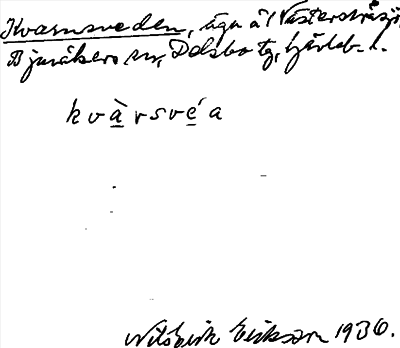 Kvarnsveden, äga å Västerstråsjö
Bjuråkers sn, Delsbo tg, Gävleb. l.
kvàrsvéa
Nils Erik Eriksson 1936.